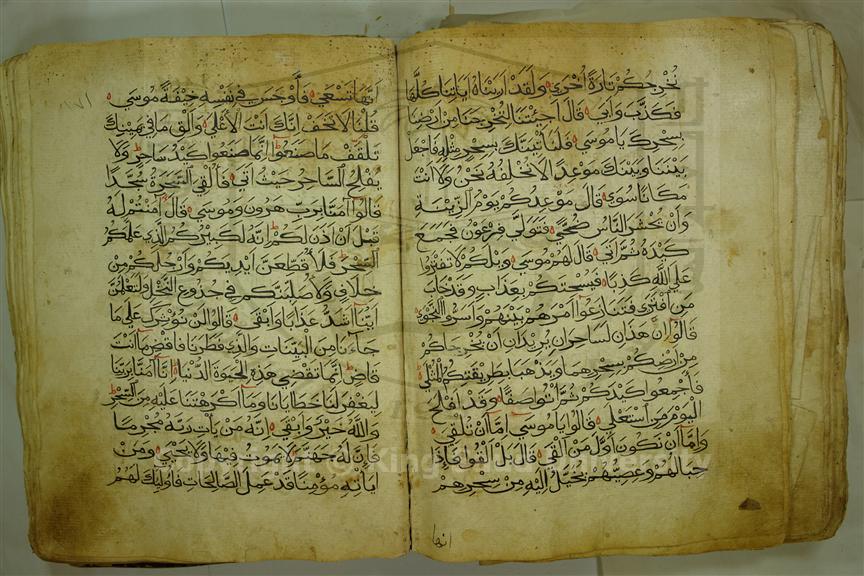 نخرجكم تارة أخرى ولقد أريناه آياتنا كلها
فكذب وأبى قال أجئتنا لتخرجنا من أرضنا
بسحرك يا موسى فلنأتينك بسحر مثله فاجعل
بيننا وبينك موعدا لا نخلفه نحن ولا أنت
مكانا سوى قال موعدكم يوم الزينة
وأن يحشر الناس ضحى فتولى فرعون فجمع
كيده ثم أتى قال لهم موسى ويلكم لا تفتروا
على الله كذبا فيسحتكم بعذاب وقد خاب
من افترى فتنازعوا أمرهم بينهم وأسروا النجوى
قالوا إن هذان لساحران يريدان أن يخرجاكم
من أرضكم بسحرهما ويذهبا بطريقتكم المثلى
فأجمعوا كيدكم ثم أتوا صفا وقد أفلح
اليوم من استعلى قالوا يا موسى إما أن تلقي
وإما أن نكون أول من ألقى قال بل ألقوا فإذا
حبالهم وعصيهم يخيل إليه من سحرهم
انها
١٧١
أنها تسعى فأوجس في نفسه خيفة موسى
قلنا لا تخف إنك أنت الأعلى وألق ما في يمينك
تلقف ما صنعوا إنما صنعوا كيد ساحر ولا
يفلح الساحر حيث أتى فألقي السحرة سجدا
قالوا آمنا برب هرون وموسى قال آمنتم له
قبل أن آذن لكم إنه لكبيركم الذي علمكم
السحر فلأقطعن أيديكم وأرجلكم من
خلاف ولأصلبنكم في جذوع النخل ولتعلمن
أينا أشد عذابا وأبقى قالوا لن نؤثرك على ما
جاءنا من البينات والذي فطرنا فاقض ما أنت
قاض إنما تقضي هذه الحيوة الدنيا إنا آمنا بربنا
ليغفر لنا خطايانا وما أكرهتنا عليه من السحر
والله خير وأبقى إنه من يأت ربه مجرما
فإن له جهنم لا يموت فيها ولا يحيى ومن
يأته مؤمنا قد عمل الصالحات فأولئك لهم